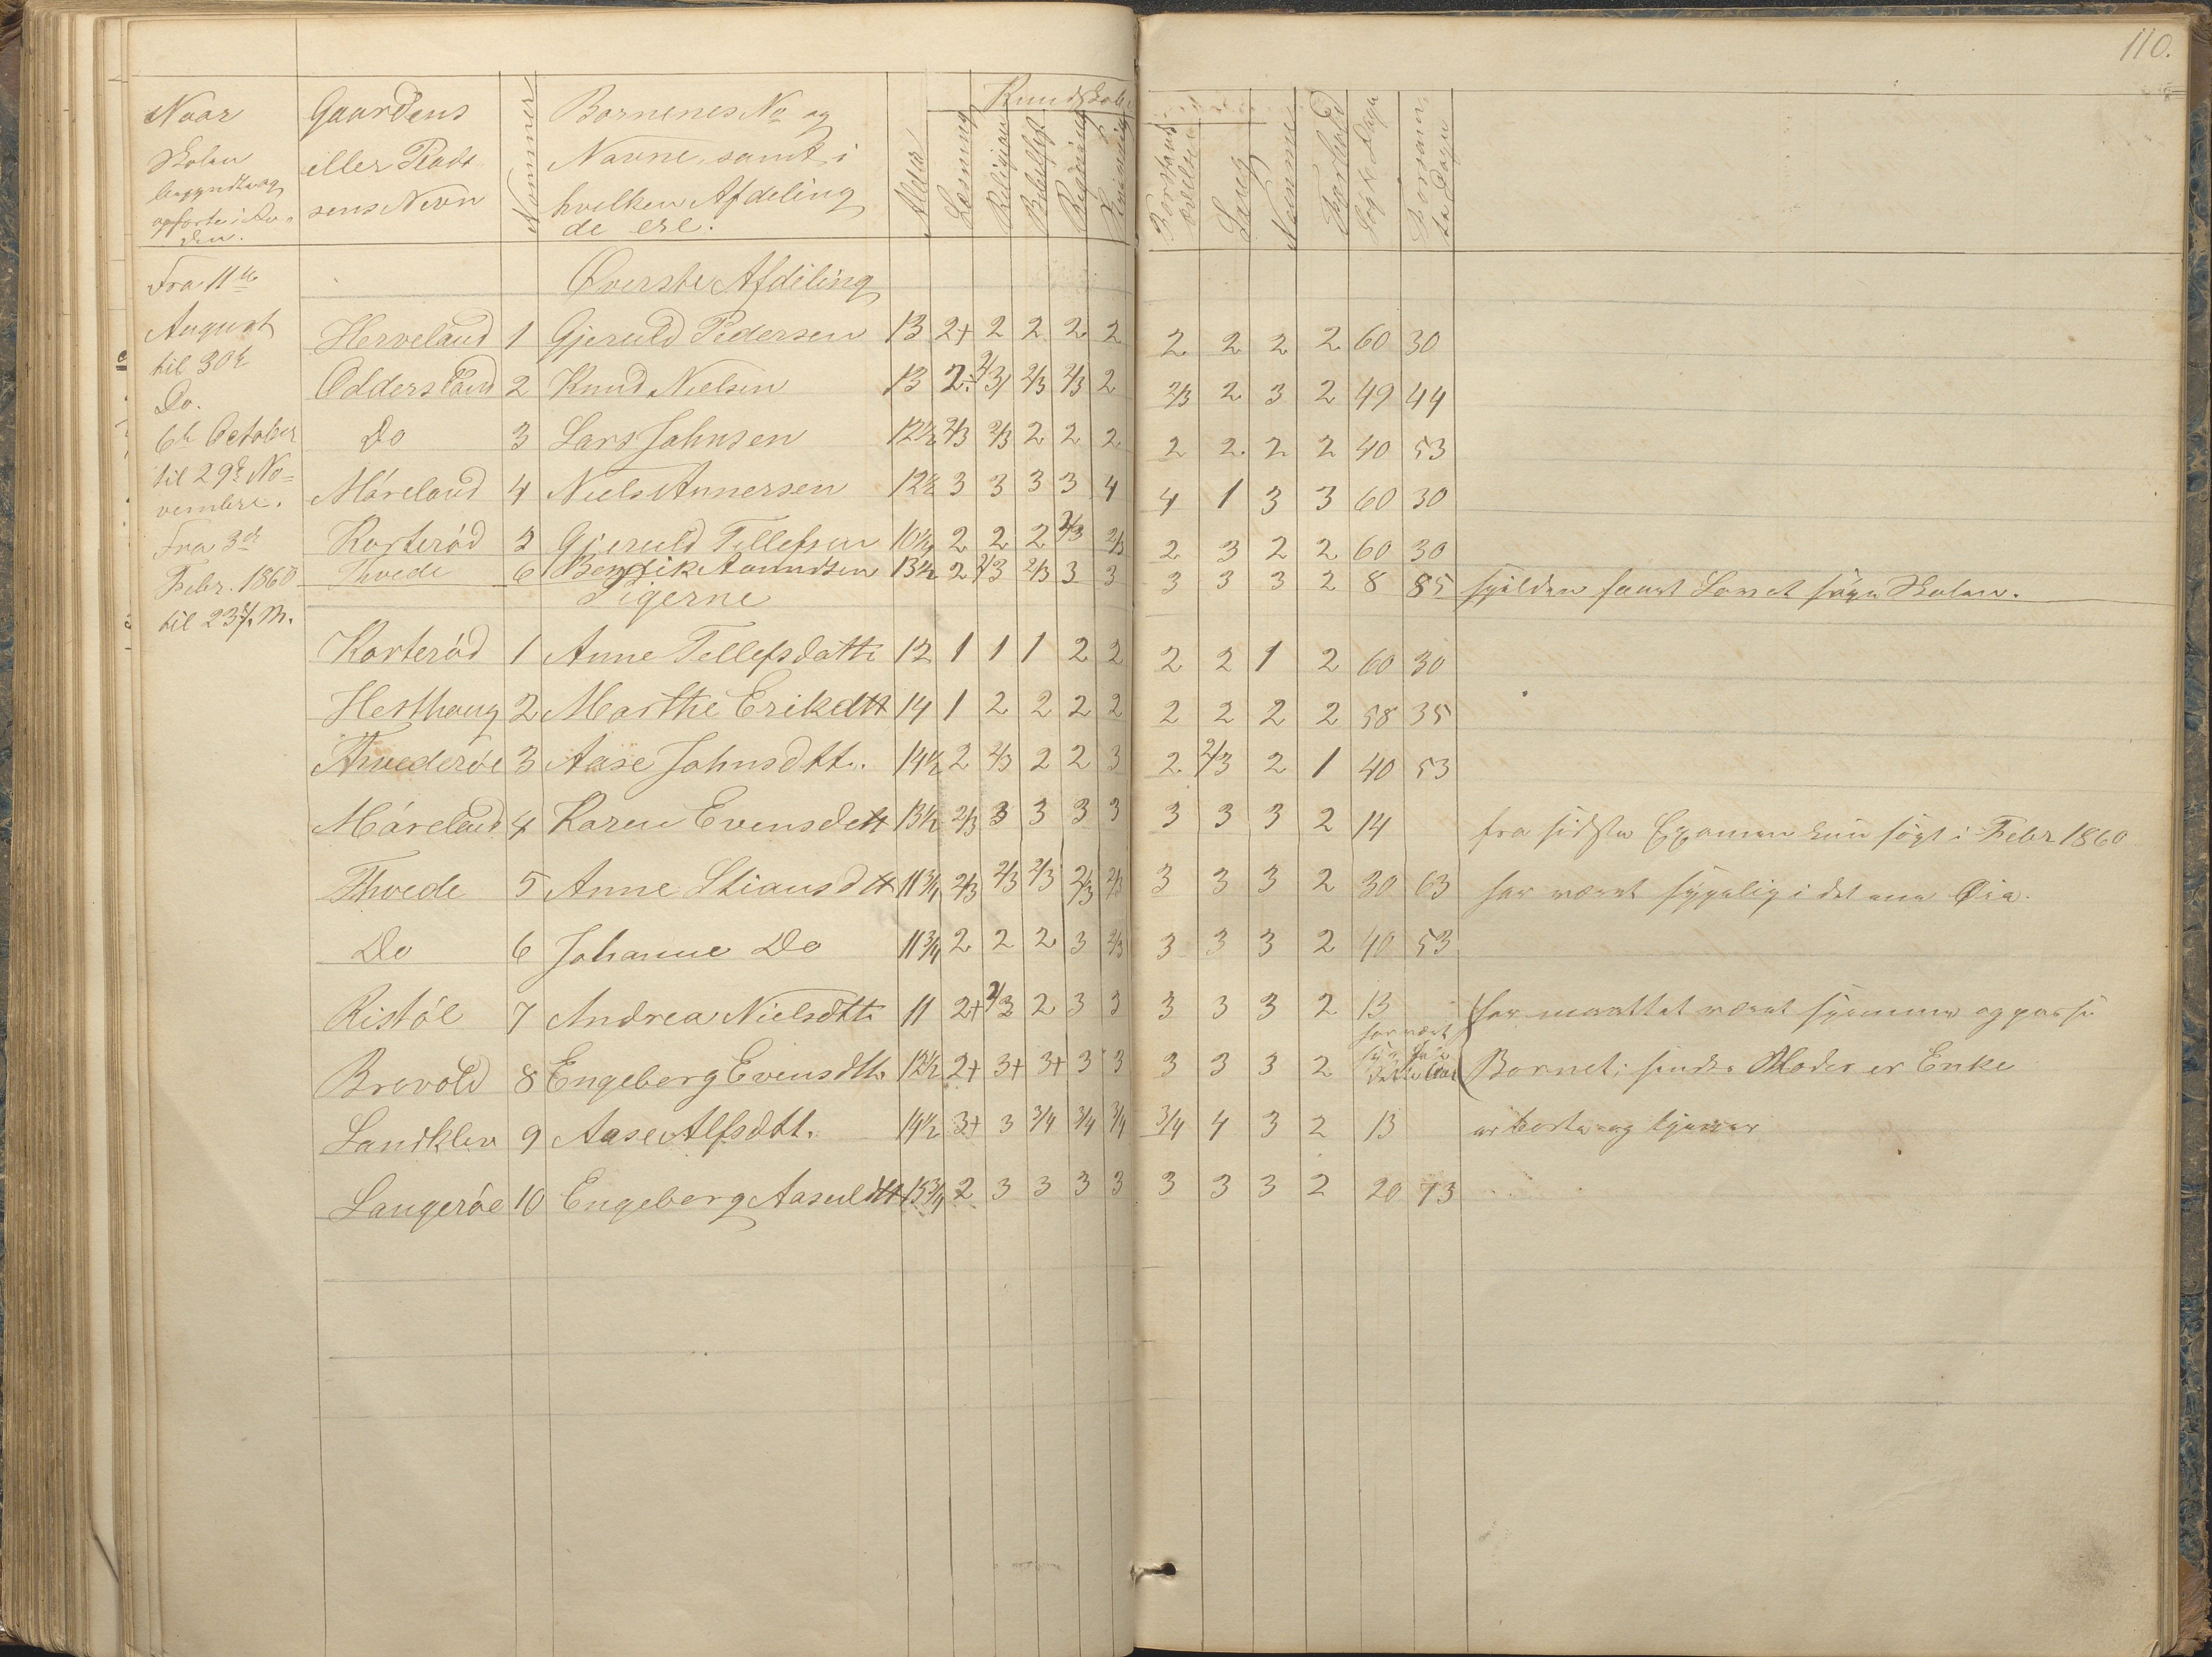 110.
Naar Skolen begyndte og opførtes i
Gaardens eller Plads sens Nevn
Nommer
Bornenes No og Navne, samt i hvilken Afdeling de ere.
Alder
Kundskab
Læsning
Religion
Regning
Søgte Dage
Fra 11te August til 30te Do.
6te October til 29de November.
Fra 3de Febr. 1860 til 23de s. M.
Øverste Afdeling
Herveland 1 Gjeruld Pedersen 13 2+ 2 2 2 2 2 2 2 2 60 30
Oddersland 2 Knud Nielsen 13 2÷ 2/3 2/3 2/3 2 2/3 2 3 2 49 44
Do 3 Lars Johnsen 12½ 2/3 2/3 2 2 2 2 2 2 2 40 53
Máreland 4 Niels Annersen 12½ 3 3 3 3 4 4 1 3 3 60 30
Korteród 5 Gjeruld Tellefsen 10½ 2 2 2 2/3 2/3 2 3 2 2 60 30
Thvede 6 Bendik Aanundsen 13½ 2 2/3 2/3 3 3 3 3 3 2 8 85 sjelden faaet Lov at søge Skolen.
Pigerne
Korteród 1 Anne Tellefsdatte 12 1 1 1 2 2 2 2 1 2 60 30
Hesthaug 2 Marthe Erikdtt 14 1 2 2 2 2 2 2 2 2 58 35
Thvederøe 3 Aase Johnsdtt. 14½ 2 2/3 2 2 3 2 2/3 2 1 40 53
Máreland 4 Karen Evensdtt 13½ 2/3 3 3 3 3 3 3 3 2 14 fra sidste Examen kun søgt i Febr 1860
Thvede 5 Anne Stiansdtt 11¾ 2/3 2/3 2/3 2/3 2/3 3 3 3 2 30 63 har været sygelig i det ene Øie.
Do 6 Johanne Do 11¾ 2 2 2 3 2/3 3 3 3 2 40 53
Ristól 7 Andrea Nielsdtt 11 2+ 2/3 2 3 3 3 3 3 2 13 har maattet været hjemme og passe
Brovold 8 Engeberg Evensdtt. 12½ 2+ 3+ 3+ 3 3 3 3 3 2 har været syg dette Aar Bornet; hendes Moder er Enke
Landklev 9 Aase Alfsdtt. 14½ 3+ 3 3/4 3/4 3/4 3/4 4 3 2 13 er borte og tjener
Langeróe 10 Engeberg Aasuldtt 13¾ 2 3 3 3 3 3 3 3 2 20 73